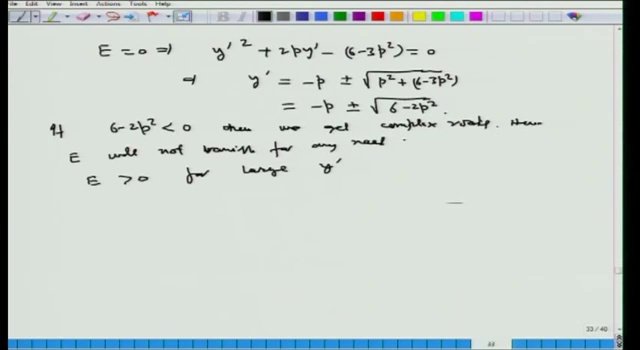 Edit View Insert Actions Tools Help
E = 0 ⇒ y'² + 2py' - (6-3p²) = 0
⇒ y' = -p ± √p² + (6-3p²)
= -p ± √6-2p².
If 6-2p² < 0 then we get complex roots. Hence
E will not vanish for any real.
E > 0 for large y'
33 / 40
33